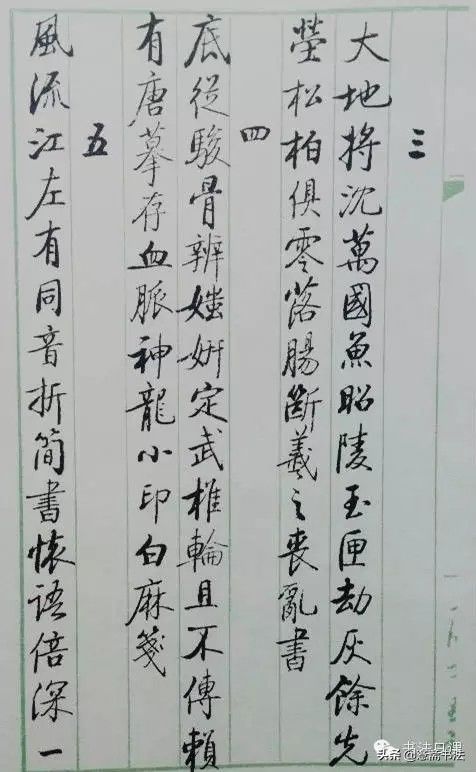 三
大地将沈萬國魚昭陵玉匣劫灰餘先
塋松柏俱零落腸斷羲之喪亂書
四
底從駿骨辨媸妍定武椎輪且不傳賴
有唐摹存血脈神龍小印白麻箋
五
風流江左有同音折簡書懷語倍深一
书法日课
头条@慈斋书法